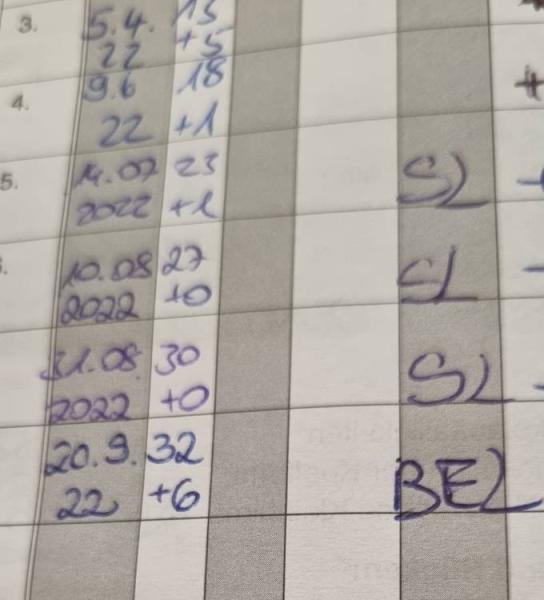 3. 5.4. 13
22 +5
9.6 18
4.
22 +1
5. 14.07 23 SL
2022 +1
10.08 27 SL
2022 +0
31.08 30 SL
2022 +0
20.9. 32
22 +6 BEL